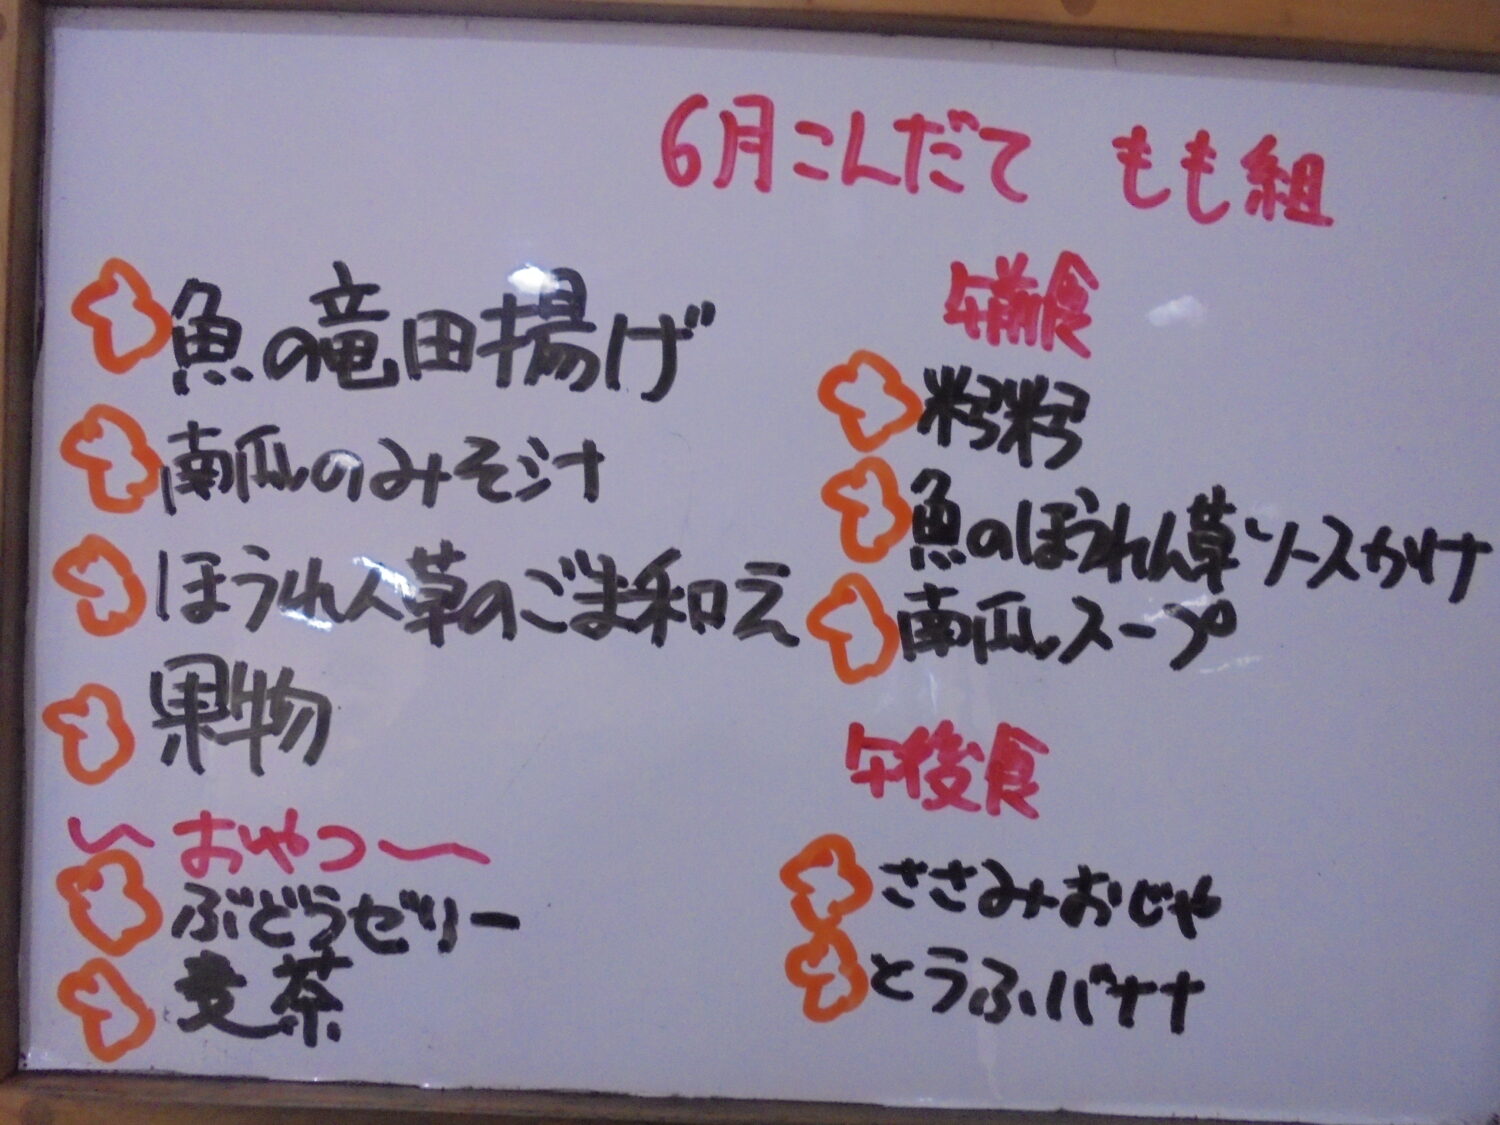 6月こんだて もも組
魚の竜田揚げ
南瓜のみそ汁
ほうれん草のごま和え
果物
～おやつ～
ぶどうゼリー
麦茶
午前食
魚のほうれん草ソースかけ
南瓜スープ
午後食
ささみおじや
とうふバナナ